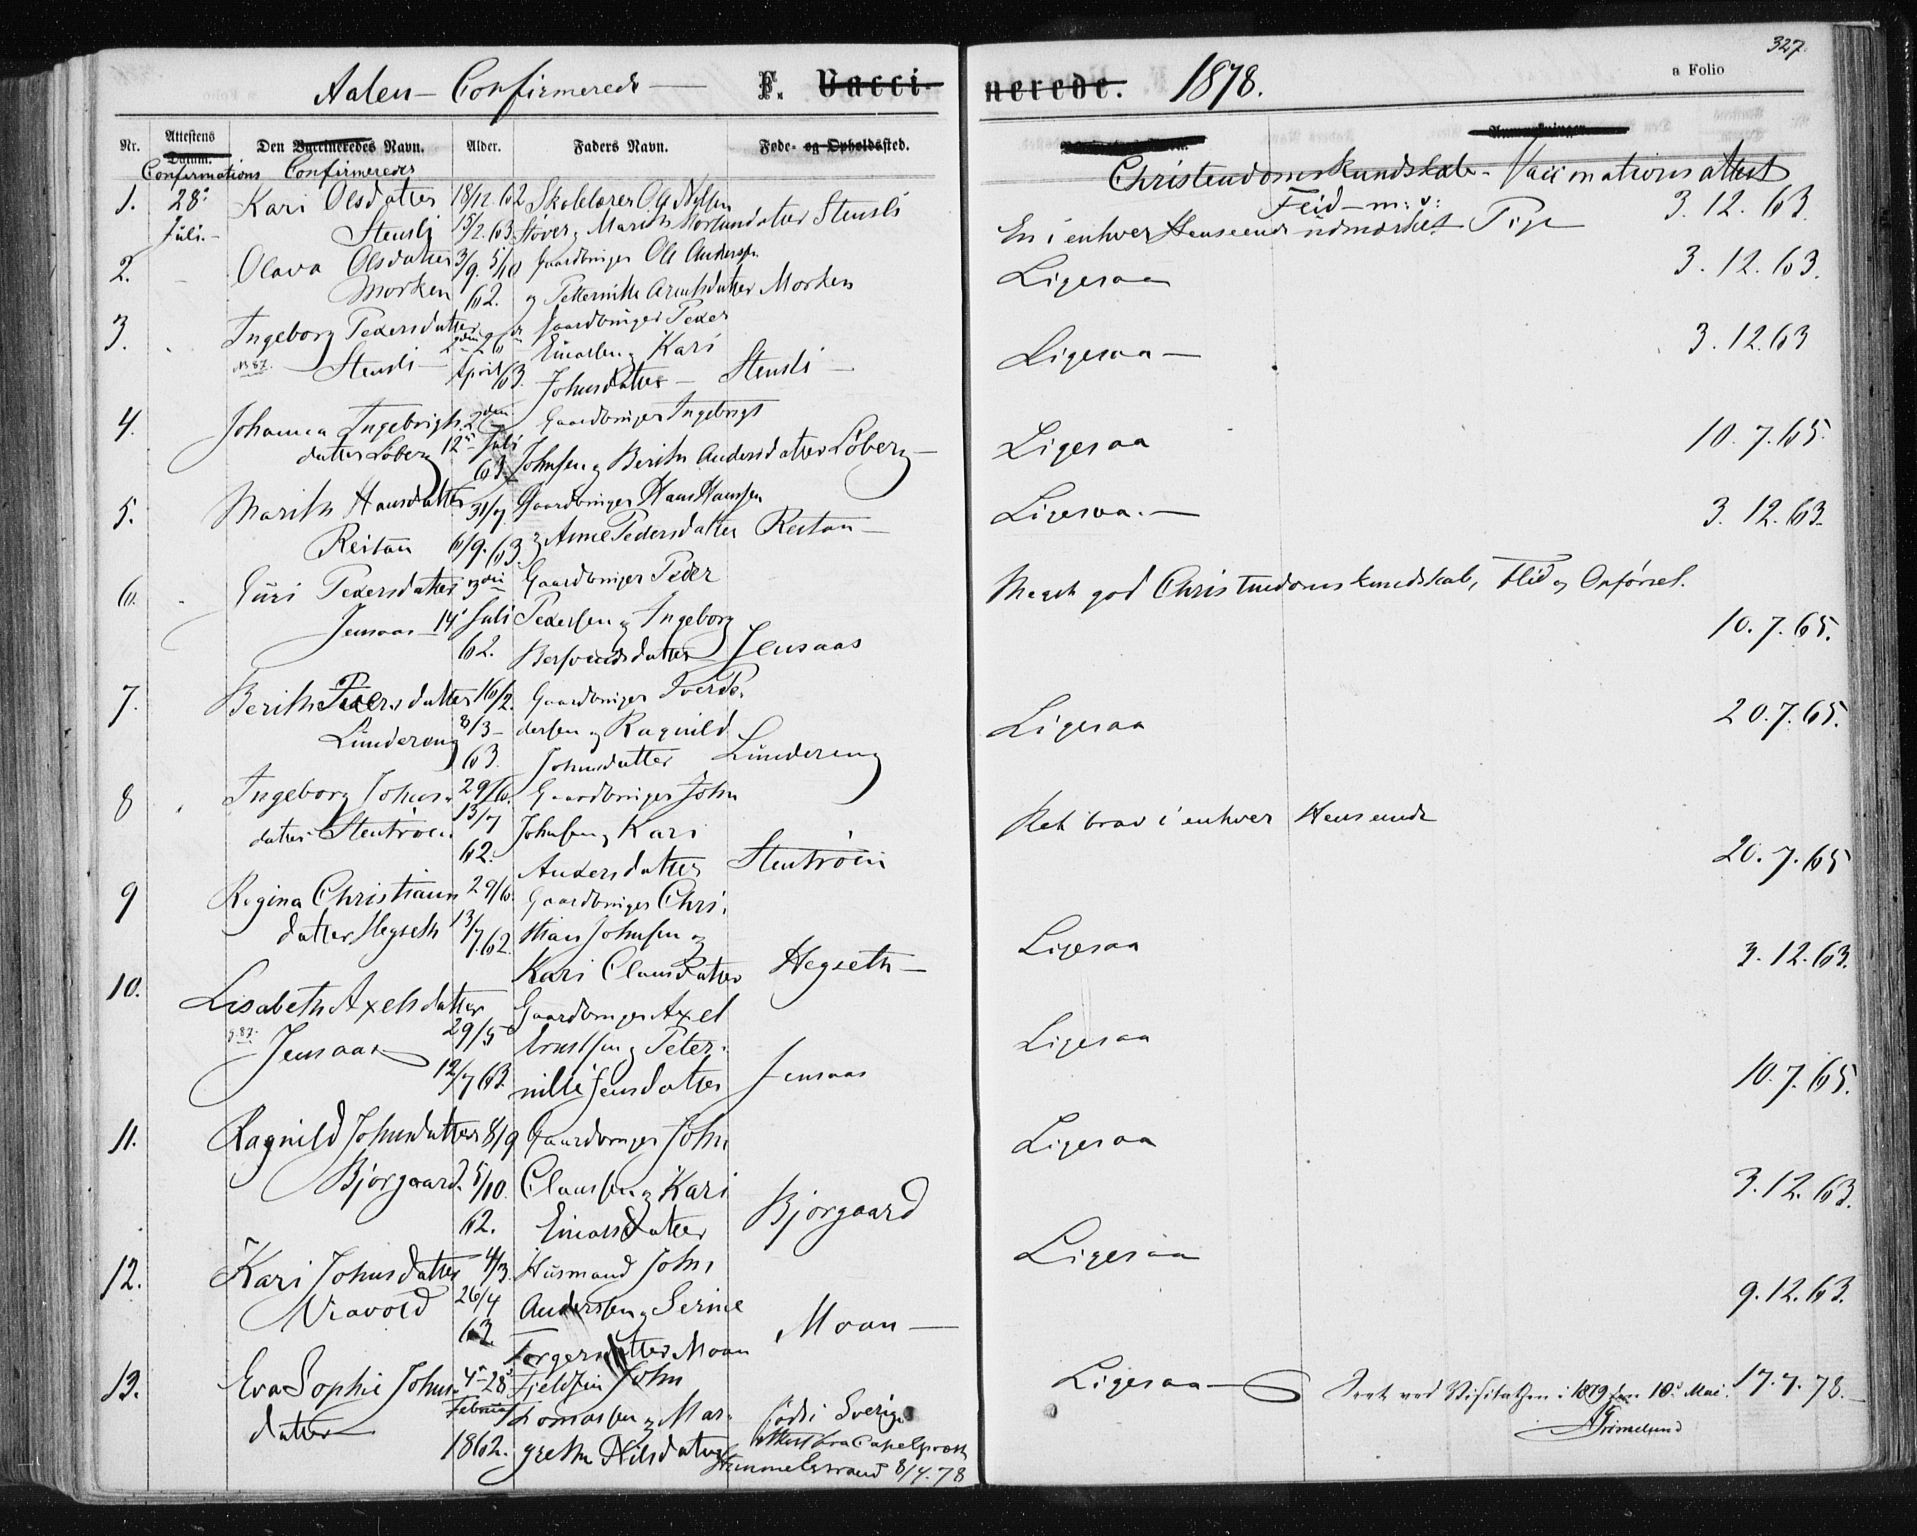 327.
Aalen - Confirmerede - F. Vacci-nerede. 1878. a Folio
Nr. Attestens Datum. Den Vaccineredes Navn. Alder. Faders Navn. Føde- og Opholdssted. Anmærkninger.
Confirmations Confirmeredes Christendomskundskab - Vaccinationsattest
Flid - m: v:
1. 28: Kari Olsdatter 18/12. 62 Skolelærer Ole Nilsen 3. 12. 63.
Juli. - Stensli 15/2. 63. Støver, Marith Mortensdatter Stensli En i enhver Henseende udmærket Pige
2. - Olava Olsdatter 3/9. 5/10 Gaardbruger Ole Andersen Ligesaa 3. 12. 63.
Morken 62. og Petternille Arntsdatter Morken
3. Ingeborg Pedersdatter Gaardbruger Peder Ligesaa - 3. 12. 63
No 87. Stensli - 26 Einarsen og Kari
April 63. Johnsdatter - Stensli -
4. Johanna Ingebrigts- 2den Gaardbruger Ingebrigt Ligesaa 10. 7. 65.
datter Løberg 12te Juli 63. Johnsen og Berith Andersdatter Løberg -
5. Marith Hansdatter 31/7 Gaardbruger Hans Hansen Ligesaa. - 3. 12. 63.
Reitan 6/9. 63. og Anne Pedersdatter Reitan -
6. Guri Pedersdatter Gaardbruger Peder Meget god Christendomskundskab, Flid og Opførsel.
Jensaas 14 Juli Pedersen og Ingeborg 10. 7. 65.
62. Bersvendsdatter Jensaas
7. Berith Pedersdatter 16/2. Gaardbruger Iver Pe- Ligesaa 20. 7. 65.
Lundereng 8/3 - dersen og Ragnild
63. Johnsdatter Lundereng
8 Ingeborg Johns- 29/6. Gaardbruger John Ret brav i enhver Henseende
datter Stentrøen 13/7 Johnsen og Kari
62. Andersdatter Stentrøen 20. 7. 65
9 Regina Christians 29/6. Gaardbruger Chri- Ligesaa
datter Hegseth 13/7. 62. stian Johnsen og 3. 12. 63.
Kari Clausdatter Hegseth -
10. Lisabeth Axelsdatter Gaardbruger Axel Ligesaa
Jensaas 29/5 Ernstsen og Peter- 10. 7. 65.
12/7 63. nille Jensdatter Jensaas
11. Ragnild Johnsdatter 8/9 Gaardbruger John Ligesaa
Bjørgaard. 5/10. Claussen og Kari 3. 12. 63.
62. Einarsdatter Bjørgaard
12. Kari Johnsdatter 4/3. Husmand John Ligesaa
26/4 Andersen og Serine Moan - 9. 12. 63.
63. Torgersdatter Moan
13. Eva Sophie Johns- 4 - 28 Fjeldfin John Ligesaa - Seet ved Visitatsen i 1879 den 18: Mai. 17. 7. 78. -
datter Februar Thomassen og Mar- født i Sverige Grimelund
1862. grethe Nilsdatter Attest fra Capelpræst
8/7. 78